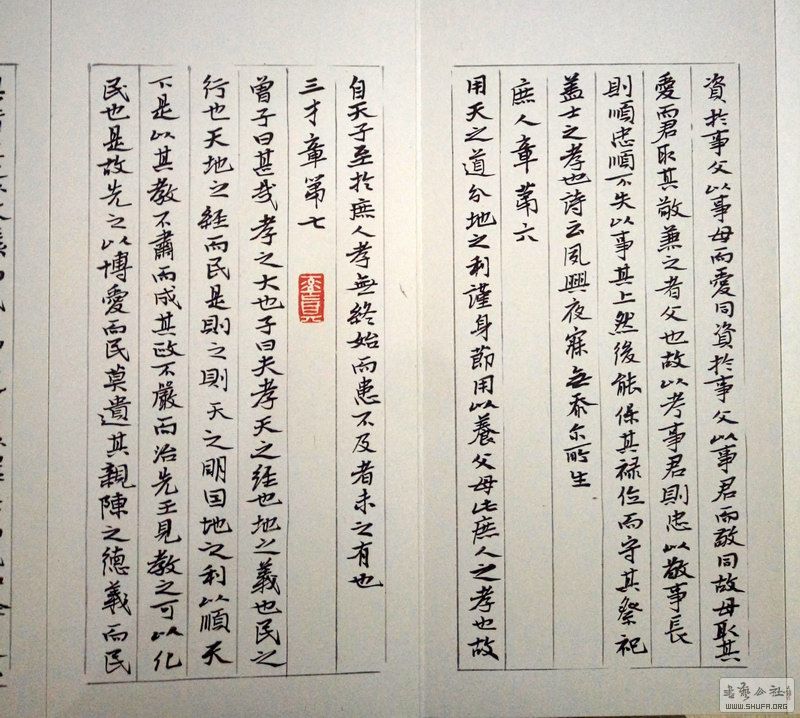 資於事父以事母而愛同資於事父以事君而敬同故母取其
愛而君取其敬兼之者父也故以孝事君則忠以敬事長
則順忠順不失以事其上然後能保其禄位而守其祭祀
盖士之孝也诗云夙興夜寐无忝尔所生
庶人章第六
用天之道分地之利謹身節用以養父母此庶人之孝也故
自天子至於庶人孝無終始而患不及者未之有也
三才章第七
曾子曰甚哉孝之大也子曰夫孝天之经也地之義也民之
行也天地之経而民是則之則天之明因地之利以順天
下是以其教不肅而成其政不嚴而治先王見教之可以化
民也是故先之以博愛而民莫遺其親陳之德義而民
書藝公社
WWW.SHUFA.ORG